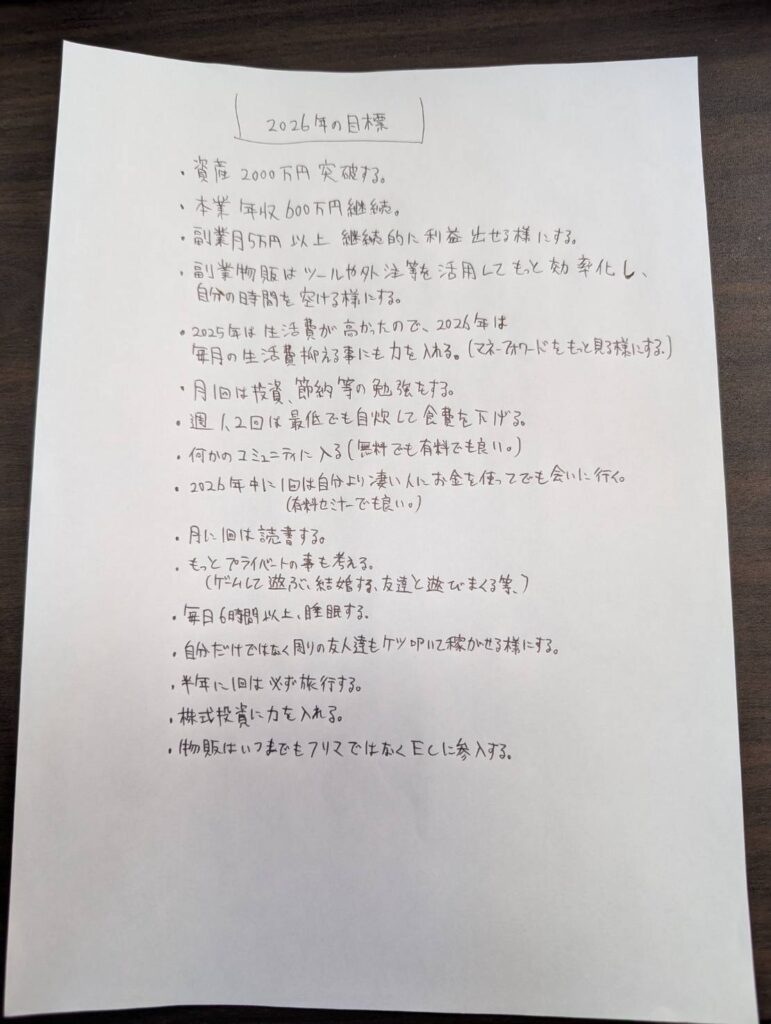 2026年の目標
・資産 2000万円 突破する。
・本業 年収 600万円継続。
・副業月5万円 以上 継続的に利益 出せる様にする。
・副業物販は ツールや外注等を活用してもっと効率化し、
自分の時間を空ける様にする。
・2025年は生活費が高かったので、2026年は
毎月の生活費抑える事にも力を入れる。(マネーフォワードをもっと見る様にする。)
・月1回は投資、節約等の勉強をする。
・週1、2回は最低でも自炊して食費を下げる。
・何かのコミュニティに入る(無料でも有料でも良い。)
・2026年中に1回は自分より凄い人にお金を使ってでも会いに行く。
(有料セミナーでも良い。)
・月に1回は読書する。
・もっとプライベートの事も考える。
(ゲームして遊ぶ、結婚する、友達と遊びまくる等、)
・毎日6時間以上、睡眠する。
・自分だけではなく周りの友人達もケツ叩いて稼がせる様にする。
・半年に1回は必ず旅行する。
・株式投資に力を入れる。
・物販はいつまでもフリマではなくECに参入する。